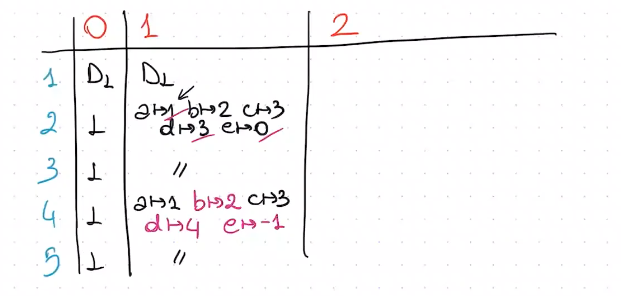 0 1 2
1 D⊥ D⊥
a↦1 b↦2 c↦3
2 ⊥ d↦3 e↦0
3 ⊥ //
a↦1 b↦2 c↦3
4 ⊥ d↦4 e↦-1
5 ⊥ //